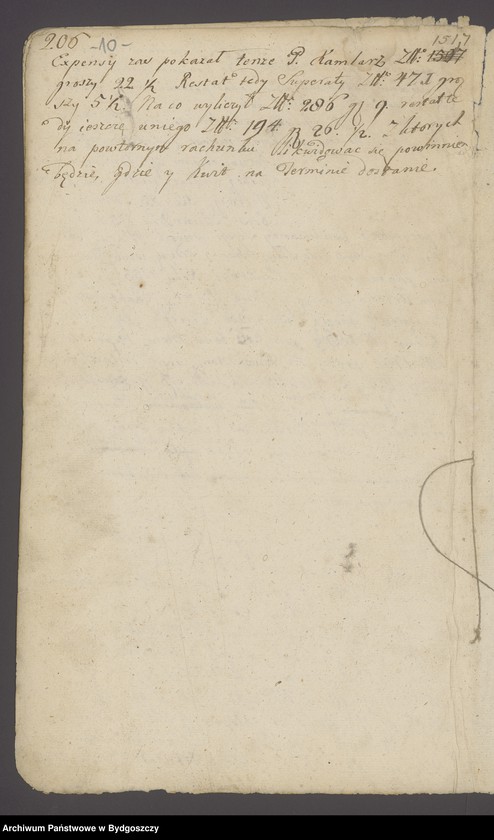 206 -10- 1517
Expensy zas pokazał tenze P. Kamlarz Złł: 1597
groszy 22 ½ Restat tedy Superaty Złł: 471 gro
szy 5 ½. Na co wyliczył Złł: 286 gr 9. restat te
dy ieszcze uniego Złł: 194 gr 26. ½. z ktorych
na powternym rachunku likwidowac się powinien
będzie, gdzie y Kwit na Terminie dostanie.
Archiwum Państwowe w Bydgoszczy